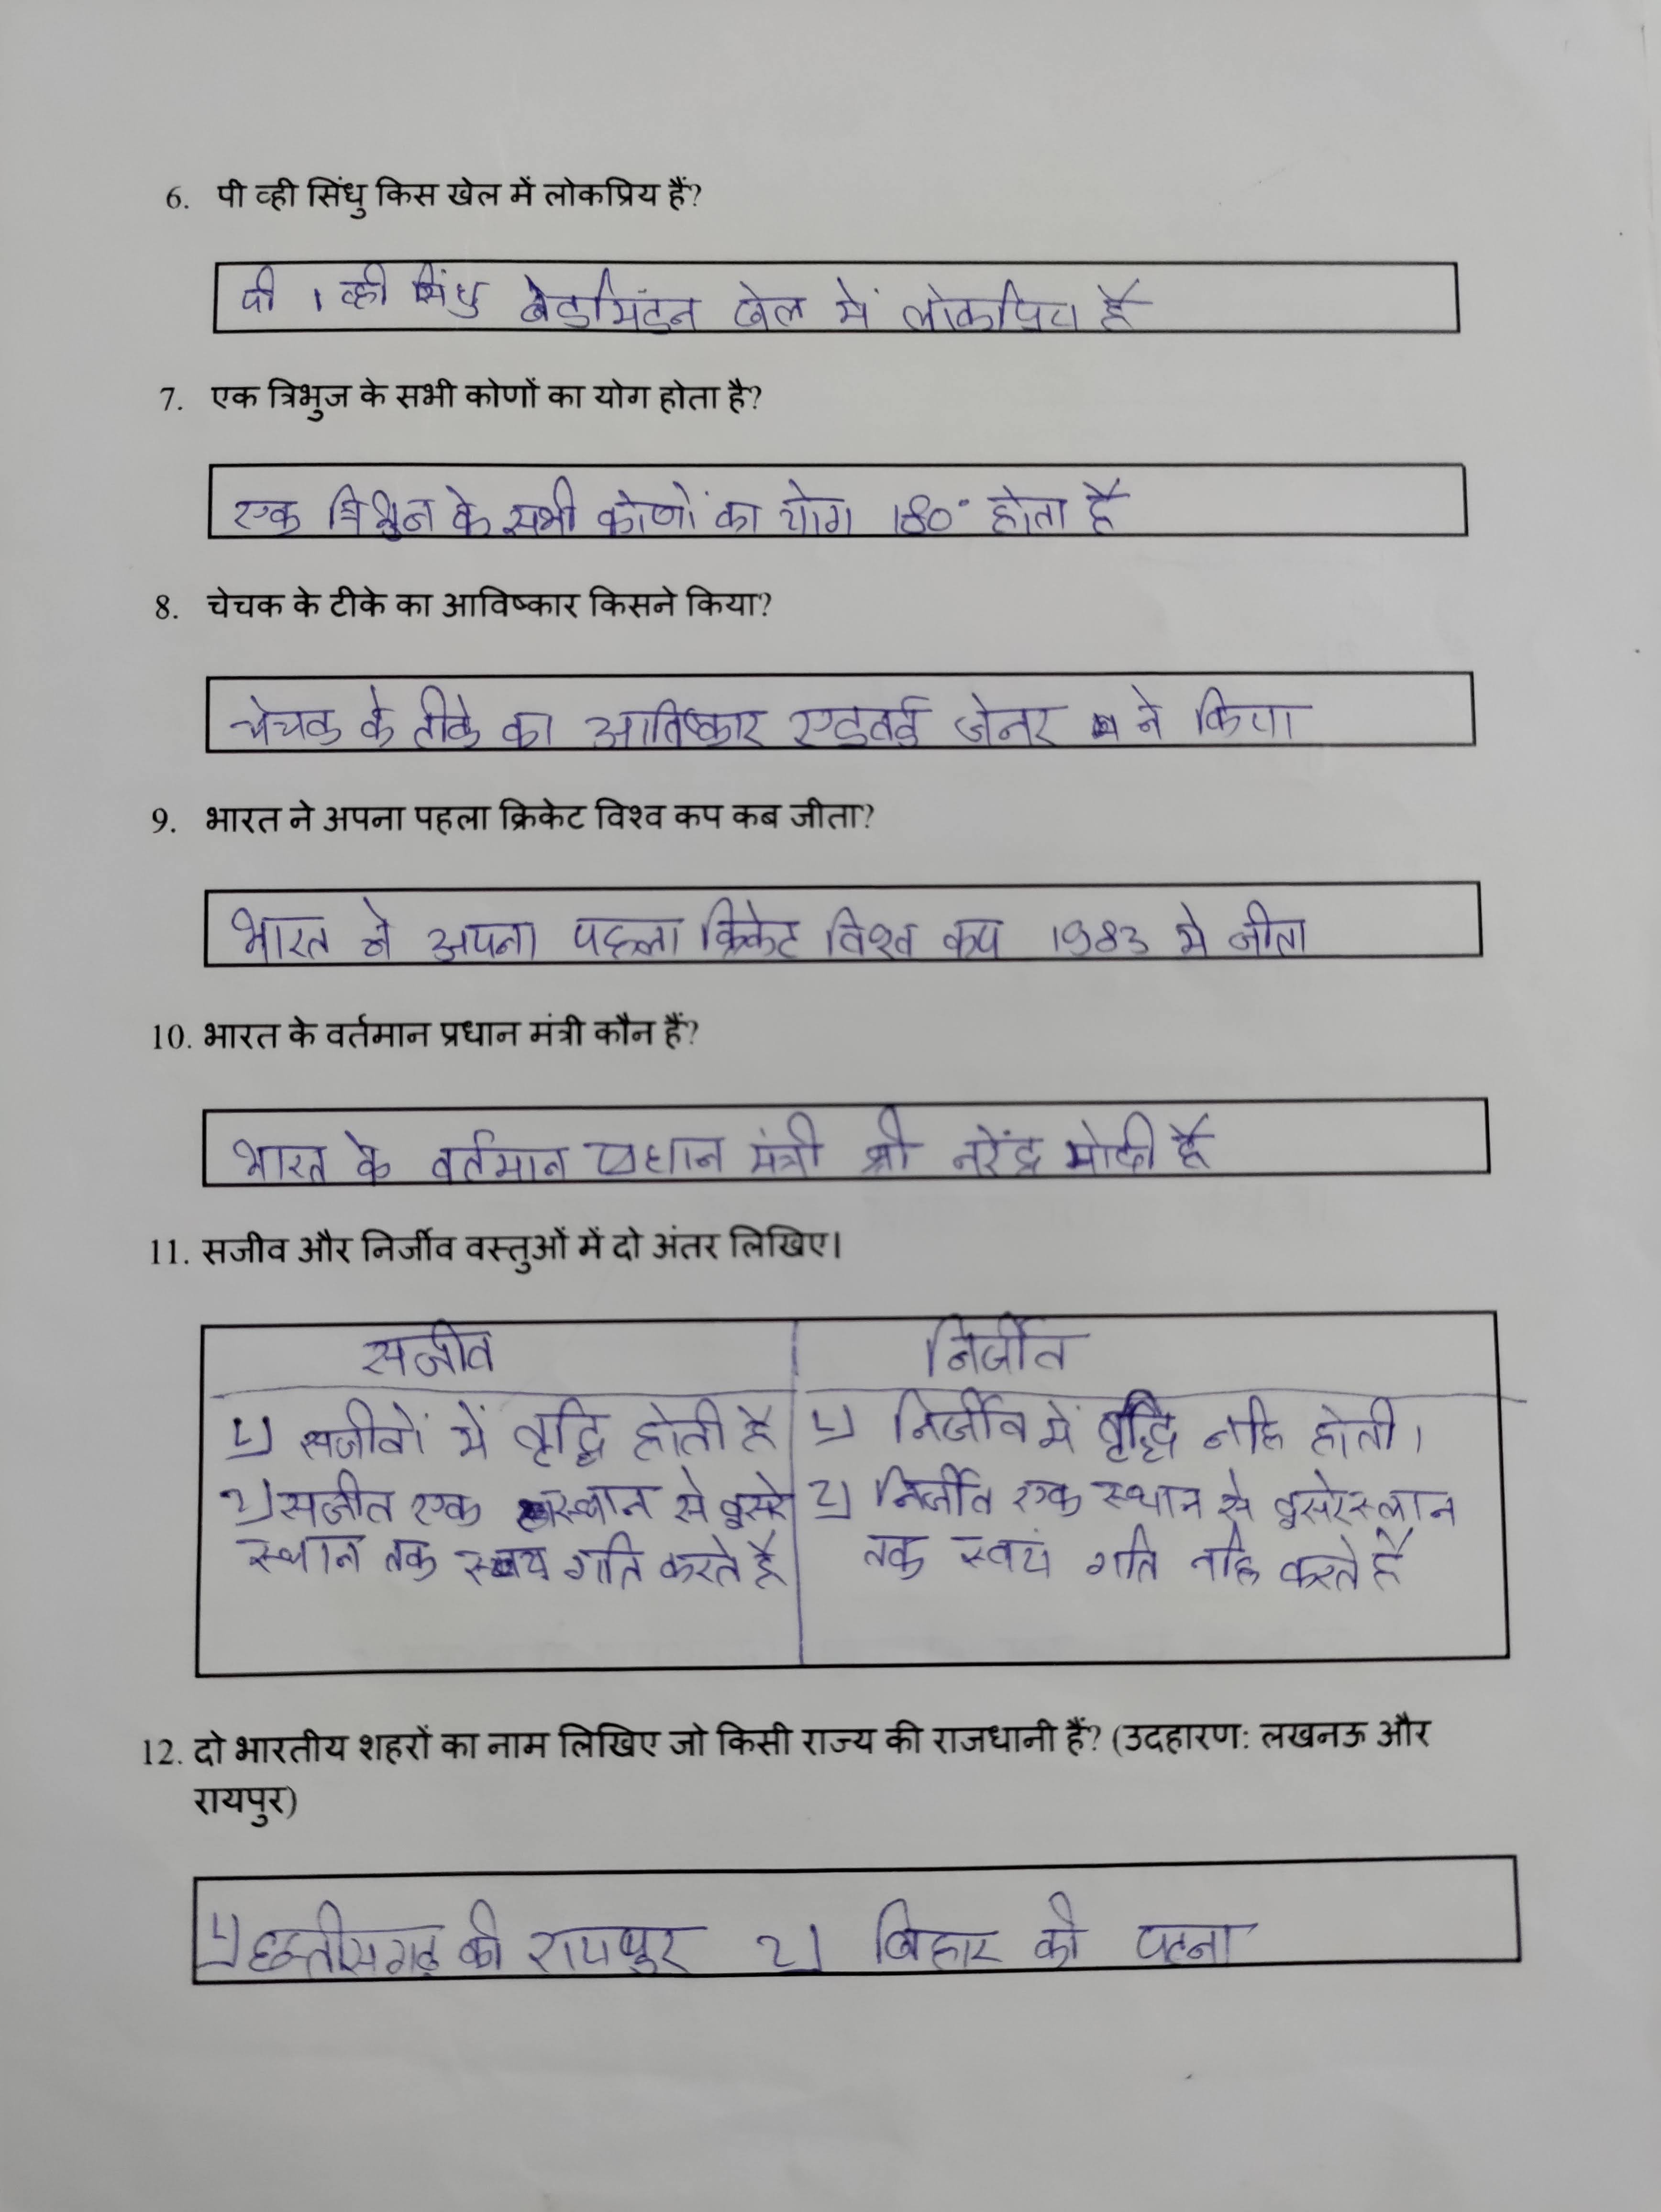 6. पी व्ही सिंधु किस खेल में लोकप्रिय हैं?
पी । व्ही सिंधु बेडमिंटन खेल में लोकप्रिय है
7. एक त्रिभुज के सभी कोणों का योग होता है?
एक त्रिभुज के सभी कोणों का योग 180° होता है
8. चेचक के टीके का आविष्कार किसने किया?
चेचक के टीके का आविष्कार एडवर्ड जेनर ने किया
9. भारत ने अपना पहला क्रिकेट विश्व कप कब जीता?
भारत ने अपना पहला क्रिकेट विश्व कप 1983 मे जीता
10. भारत के वर्तमान प्रधान मंत्री कौन हैं?
भारत के वर्तमान प्रधान मंत्री श्री नरेंद्र मोदी है
11. सजीव और निर्जीव वस्तुओं में दो अंतर लिखिए।
सजीव
1) सजीवों में वृद्धि होती है
2) सजीव एक स्थान से दुसरे
स्थान तक स्वय गति करते है
निर्जीव
1) निर्जीव में वृद्धि नहि होती।
2) निर्जीव एक स्थान से दुसरे स्थान
तक स्वयं गति नहि करते है
12. दो भारतीय शहरों का नाम लिखिए जो किसी राज्य की राजधानी हैं? (उदहारण: लखनऊ और
रायपुर)
1) छत्तीसगढ़ की रायपुर 2) बिहार की पटना